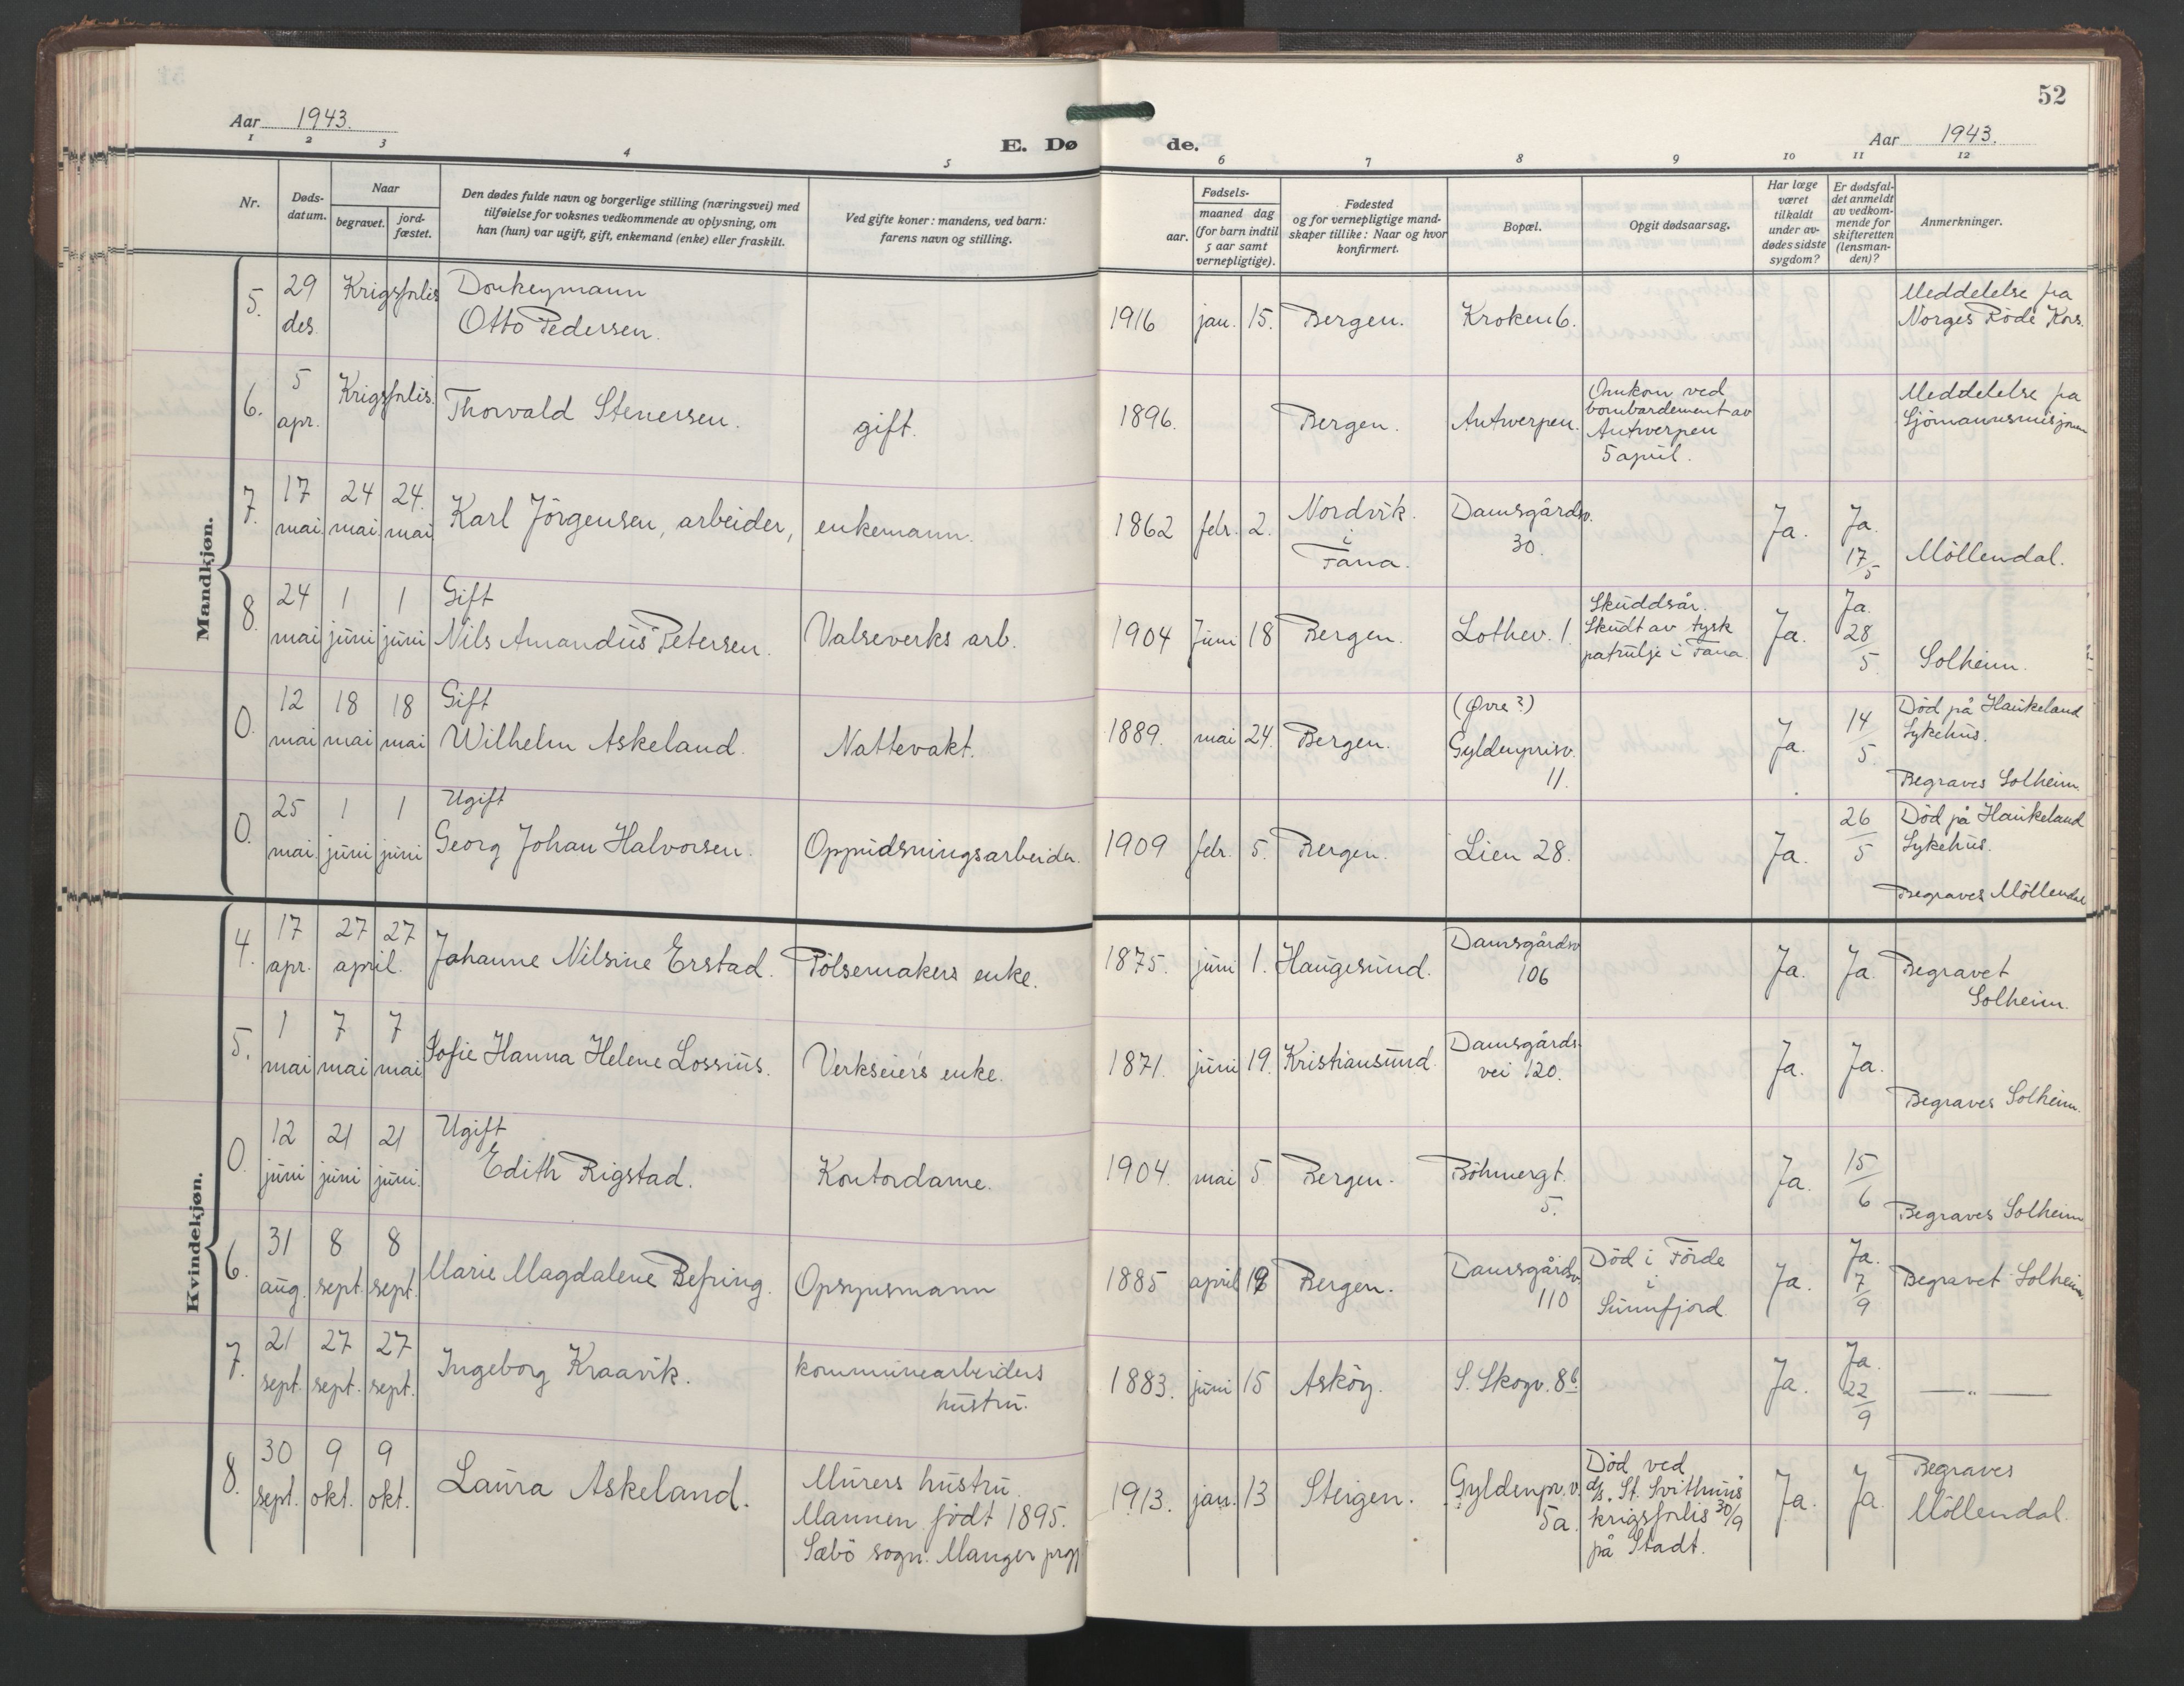 52
Aar 1943.
Aar 1943.
E. Dø de.
1 2 3 4 5 6 7 8 9 10 11 12
Nr.
Døds-
datum.
Naar
begravet.
jord-
fæstet.
Den dødes fulde navn og borgerlige stilling (næringsvei) med
tilføielse for voksnes vedkommende av oplysning, om
han (hun) var ugift, gift, enkemand (enke) eller fraskilt.
Ved gifte koner: mandens, ved barn:
farens navn og stilling.
Fødsels-
aar.
maaned dag
(for barn indtil
5 aar samt
vernepligtige).
Fødested
og for vernepligtige mand-
skaper tillike: Naar og hvor
konfirmert.
Bopæl.
Opgit dødsaarsag.
Har læge
været
tilkaldt
under av-
dødes sidste
sygdom?
Er dødsfal-
det anmeldt
av vedkom-
mende for
skifteretten
(lensman-
den)?
Anmerkninger.
Mandkjøn.
5.
29
des.
Krigsforlis
Donkeymann
Otto Pedersen.
1916 jan. 15. Bergen. Kroken 6.
Meddelelse fra
Norges Röde Kors.
6.
5
apr.
Krigsforlis.
Thorvald Stenersen.
gift.
1896. Bergen. Antwerpen.
Omkom ved
bombardement av
Antwerpen
5 april.
Meddelelse fra
Sjömannsmisjonen
7.
17 24 24.
mai. mai. mai
Karl Jörgensen, arbeider, enkemann.
1862 febr. 2.
Nordvik.
i
Fana.
Damsgårdsv.
30.
Ja.
Ja.
17/5
Möllendal.
8.
24 1 1
mai juni juni
Gift
Nils Amandus Petersen. Valseverks arb.
1904 Juni 18 Bergen. Lothev. 1.
Skuddsår.
Skudt av tysk
patrulje i Fana.
Ja.
Ja.
28/5
Solheim.
0.
12 18 18
mai mai mai
Gift
Wilhelm Askeland. Nattevakt.
1889. mai 24. Bergen.
(Øvre?)
Gyldenprisv.
11.
Ja.
14/5
Död på Haukeland
Sykehus.
Begraves Solheim.
0.
25 1 1
mai. juni juni
Ugift
Georg Johan Halvorsen. Oppudsningsarbeider.
1909 febr. 5. Bergen. Lien 28.
Ja.
26/5
Död på Haukeland
Sykehus.
Begraves Möllendal
Kvindekjøn.
4.
17 27 27
apr. april.
Johanne Nilsine Erstad. Pölsemakers enke.
1875. juni 1. Haugesund.
Damsgårdsv
106
Ja. Ja
Begravet
Solheim.
5.
1 7 7
mai mai mai
Sofie Hanna Helene Lossius. Verkseier's enke.
1871. juni 19. Kristiansund.
Damsgårds-
vei 120.
Ja. Ja.
Begraves Solheim.
0.
12 21 21
juni juni juni.
Ugift
Edith Rigstad. Kontordame.
1904. mai 5. Bergen.
Böhmergt.
5.
Ja.
15/6
Begraves Solheim
6.
31 8 8
aug. sept. sept.
Marie Magdalene Befring. Opsynsmann
1885 april Bergen.
Damsgårdsv.
110
Död i Förde
i
Sunnfjord
Ja.
Ja.
7/9
Begravet Solheim.
7.
21 27 27
sept. sept. sept.
Ingeborg Kraavik.
kommunearbeiders
hustru.
1883. juni 15 Asköy. S. Skogv. 8b.
Ja.
Ja.
22/9
—„—
8.
30 9 9
sept. okt. okt.
Laura Askeland.
Murers hustru.
Mannen födt 1895.
Sæbö sogn. Manger prgj
1913. jan. 13 Steigen.
Gyldenpr.v.
5a.
Död ved
d/s. St. Svithuns
krigsforlis 30/9
på Stadt.
Ja. Ja.
Begraves
Möllendal.